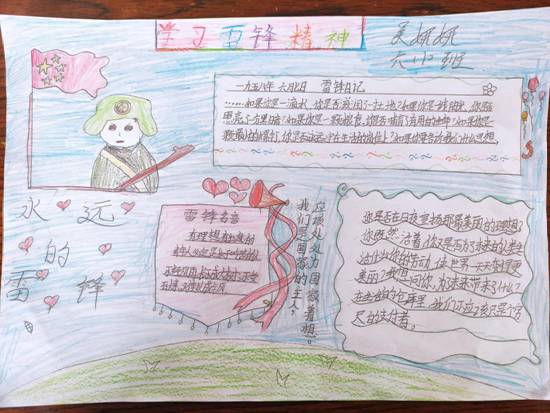 学习雷锋精神
六
班
一九五八年 六月七日 雷锋日记
……如果你是一滴水,你是否滋润了一寸土地?如果你是一线阳光,你是否
照亮了一分黑暗?如果你是一颗粮食,你是否哺育了有用的生命?如果你是一
颗最小的螺丝钉,你是否永远坚守在你生活的岗位上?如果你要告诉我们什么思想,
永远
的
雷锋
雷锋名言
我们是国家的主人,
应该处处为国家着想。
你是否在日夜宣扬那最美丽的理想?
你既然活着,你又是否为了未来的人类生
活付出你的劳动,使世界一天天变得更
美丽?我想问你,为未来带来了什么?
在生活的仓库里,我们不应该只是个无穷
尽的支付者。